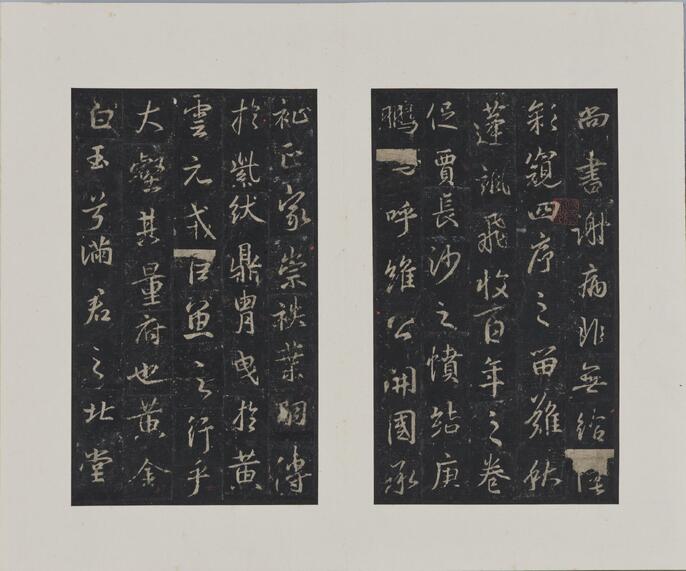 尚書謝病非無給
彩窺四序之留難狀
蓬颯飛收百年之卷
促賈長沙之憤結庚
鵬 呼維公開國承
祉正家崇袟葉羽傳
於紫紱鼎胄曳於黃
雲元戎 之行乎
大壑其量府也黃金
白玉兮滿君之北堂